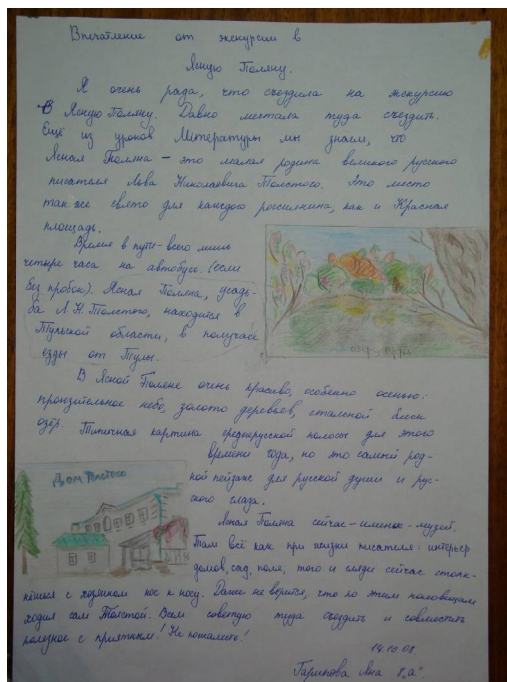 Впечатление от экскурсии в
Ясную Поляну.
Я очень рада, что съездила на экскурсию
в Ясную Поляну. Давно мечтала туда съездить.
Ещё из уроков Литературы мы знаем, что
Ясная Поляна – это малая родина великого русского
писателя Льва Николаевича Толстого. Это место
так же свето для каждого россиянина, как и Красная
площадь.
Время в пути – всего лишь
четыре часа на автобусе. (если
без пробок). Ясная Поляна, усадь-
ба Л.Н.Толстого, находится в
Тульской области, в получасе
езды от Тулы.
В Ясной Поляне очень красиво, особенно осенью:
пронзительное небо, золото деревьев, стальной блеск
озёр. Типичная картина среднерусской полосы для этого
времени года, но это самый род-
ной пейзаж для русской души и рус-
ского глаза.
Дом Толстого
Ясная Поляна сейчас – имение-музей.
Там всё как при жизни писателя: интерьер
домов, сад, поля, того и гляди сейчас столк-
нёшься с хозяином нос к носу. Даже не верится, что по этим половицам
ходил сам Толстой. Всем советую туда съездить и совместить
полезное с приятным! Не пожалеете!
14.10.08
Гарипова Яна 8 „а"